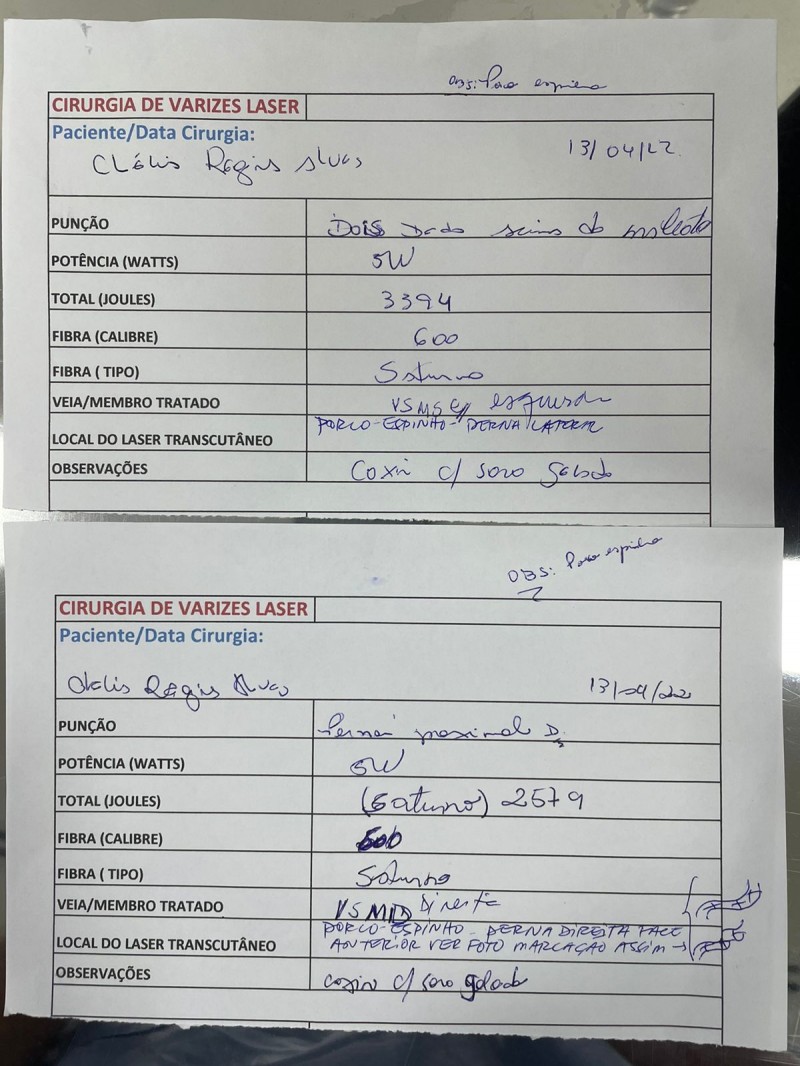 OBS: Porco espinho
CIRURGIA DE VARIZES LASER
Paciente/Data Cirurgia:
13/04/22
Clélis Regis Alves
PUNÇÃO Dois do
POTÊNCIA (WATTS) 5W
TOTAL (JOULES) 3394
FIBRA (CALIBRE) 600
FIBRA ( TIPO) Saturno
VEIA/MEMBRO TRATADO esquerda
LOCAL DO LASER TRANSCUTÂNEO PORCO-ESPINHO - PERNA LATERAL
OBSERVAÇÕES Coxin c/ soro gelado
OBS: Porco espinho
CIRURGIA DE VARIZES LASER
Paciente/Data Cirurgia:
Clelis Regis Alves 13/04/22
PUNÇÃO Perna proximal D
POTÊNCIA (WATTS) 5W
TOTAL (JOULES) (Saturno) 2579
FIBRA (CALIBRE) 600
FIBRA ( TIPO) Saturno
VEIA/MEMBRO TRATADO VSMD Direita
LOCAL DO LASER TRANSCUTÂNEO PORCO-ESPINHO - PERNA DIREITA FACE
ANTERIOR VER FOTO MARCAÇÃO ASSIM →
OBSERVAÇÕES coxin c/ soro gelado